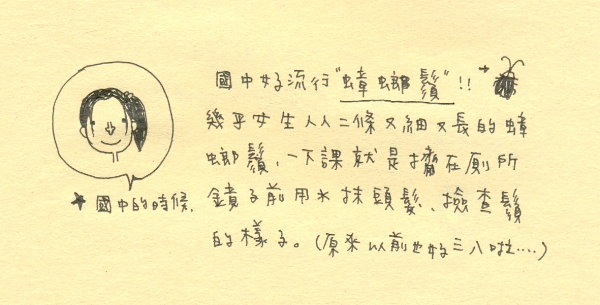 國中好流行"蟑螂鬚"!!
幾乎女生人人二條又細又長的蟑
螂鬚,一下課就是擠在廁所
鏡子前用水抹頭髮、檢查鬚
的樣子。(原來以前也好三八啦....)
國中的時候,